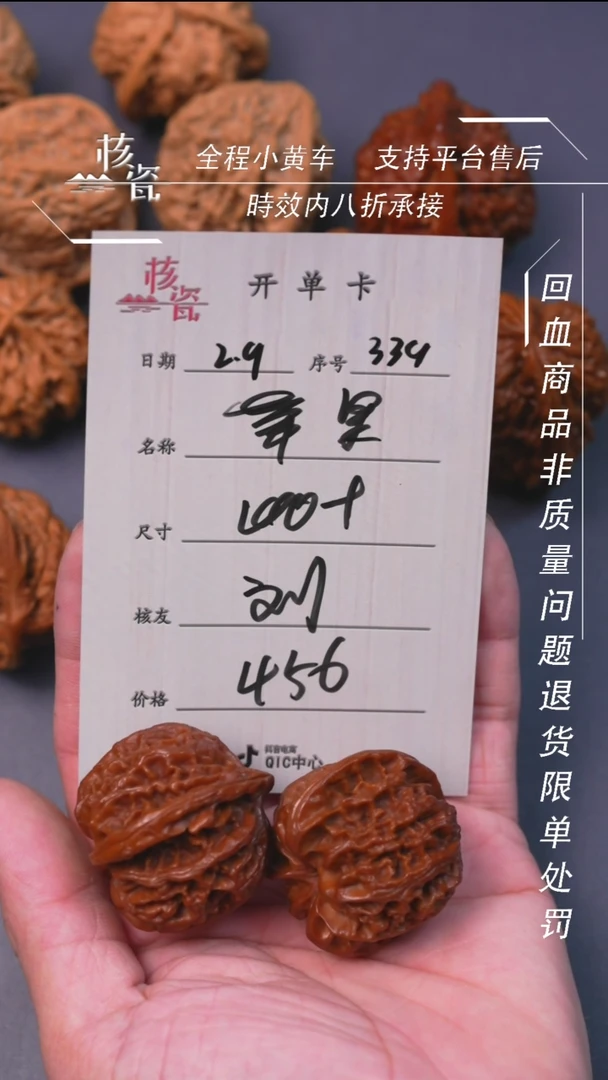 核瓷
全程小黄车 支持平台售后
時效内八折承接
回血商品非质量问题退货限单处罚
核瓷 开单卡
日期 2.9 序号 339
名称 苹果
尺寸
核友 刘
价格 456
抖音电商
QIC中心